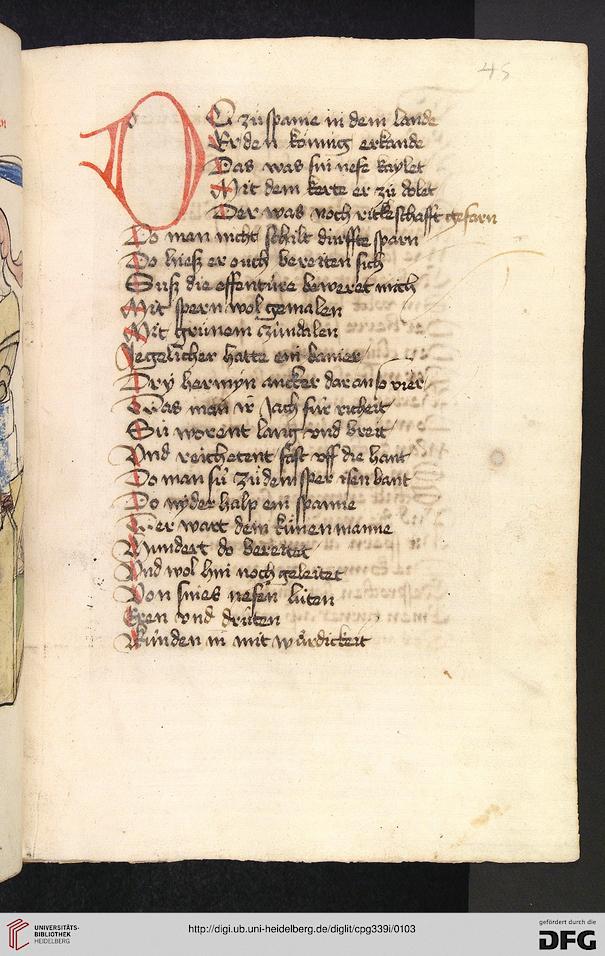 45
DO zü spanie in dem lande
Er den kömig erkande
Das was sin nefe kaylet
Mit dem kerte er zü dolet
Der was noch ritterschafft gefarn
Do man nicht schilt dürffte sparn
Do hiesz er ouch bereiten sich
Susz die offentüre beweret mich
Mit spern wol gemalen
Mit grünem zündalen
Jegelicher hatte ein banier
Dry hermyn ancker dar an so vier
Das man ir jach für richeit
Sü worent lang vnd breit
Vnd reichetent fast vff die hant
So man sü zü dem sper isen bant
Do nyder halp ein spanne
Der wart dem künen manne
Hundert do bereitet
Vnd wol hin noch geleitet
Von sines nefen lüten
Eren vnd drüten
Künden in mit wurdickeit
UNIVERSITÄTS-
BIBLIOTHEK
HEIDELBERG
http://digi.ub.uni-heidelberg.de/diglit/cpg339i/0103
gefördert durch die
DFG